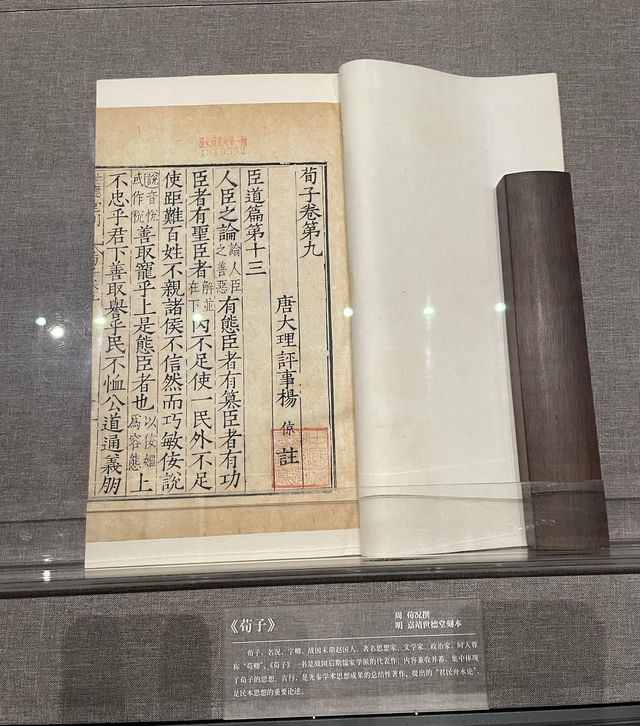 荀子卷第九
唐大理評事楊倞註
臣道篇第十三
人臣之論論人臣之善惡有態臣者有篡臣者有功
臣者有聖臣者解並在下內不足使一民外不足
使距難百姓不親諸侯不信然而巧敏佞說
說音悅或作悅善取寵乎上是態臣者也以佞媚爲容態上
不忠乎君下善取譽乎民不恤公道通義朋
《荀子》
周 荀况撰
明 嘉靖世德堂刻本
荀子,名况,字卿,战国末期赵国人,著名思想家、文学家、政治家,时人尊
称“荀卿”。《荀子》一书是战国后期儒家学派的代表作,内容兼收并蓄,集中体现
了荀子的思想、言行,是先秦学术思想成果的总结性著作。提出的“君民舟水论”,
是民本思想的重要论述。